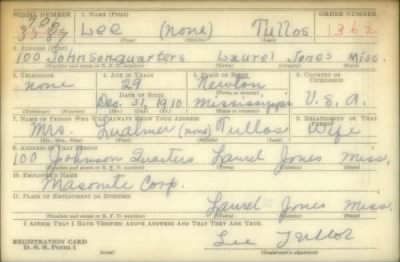 SERIAL NUMBER 1. NAME (Print) ORDER NUMBER
Lee (none) Tullos 1362
(First) (Middle) (Last)
2. ADDRESS (Print)
100 Johnson quarters Laurel Jones Miss.
(Number and street or R. F. D. number) (Town) (County) (State)
3. TELEPHONE 4. AGE IN YEARS 5. PLACE OF BIRTH 6. COUNTRY OF CITIZENSHIP
none 29 Newton
DATE OF BIRTH
Dec. 31, 1910 Mississippi U.S.A.
7. NAME OF PERSON WHO WILL ALWAYS KNOW YOUR ADDRESS 8. RELATIONSHIP OF THAT PERSON
Mrs. (none) Tullos Wife
(Mr., Mrs., Miss) (First) (Middle) (Last)
9. ADDRESS OF THAT PERSON
100 Johnson Quarters Laurel Jones Miss.
(Number and street or R. F. D. number) (Town) (County) (State)
10. EMPLOYER'S NAME
Masonite Corp.
11. PLACE OF EMPLOYMENT OR BUSINESS
Laurel Jones Miss.
(Number and street or R. F. D. number) (Town) (County) (State)
I AFFIRM THAT I HAVE VERIFIED ABOVE ANSWERS AND THAT THEY ARE TRUE.
REGISTRATION CARD
D. S. S. Form 1
Lee Tullos
(Registrant's signature)